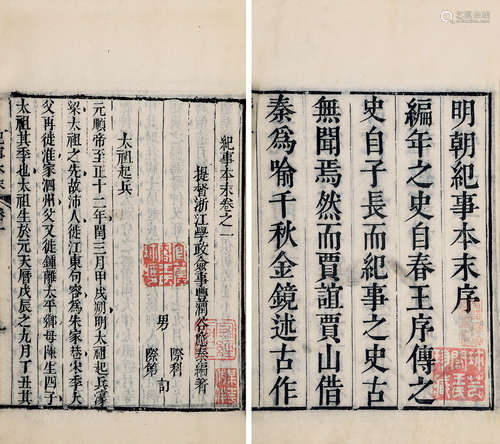 明朝紀事本末序
編年之史自春王序傳之
史自子長而紀事之史古
無聞焉然而賈誼賈山借
秦為喻千秋金鏡述古作
紀事本末卷之一
提督浙江學政僉事豐潤谷應泰編著
男 際科 際第 訂
太祖起兵
元順帝至正十二年閏三月甲戌朔明太祖起兵濠
梁太祖之先故沛人徙江東句容為朱家巷宋季大
父再徙淮家泗州父又徙鍾離太平鄉母陳生四子
太祖其季也太祖生於元天曆戊辰之九月丁丑其